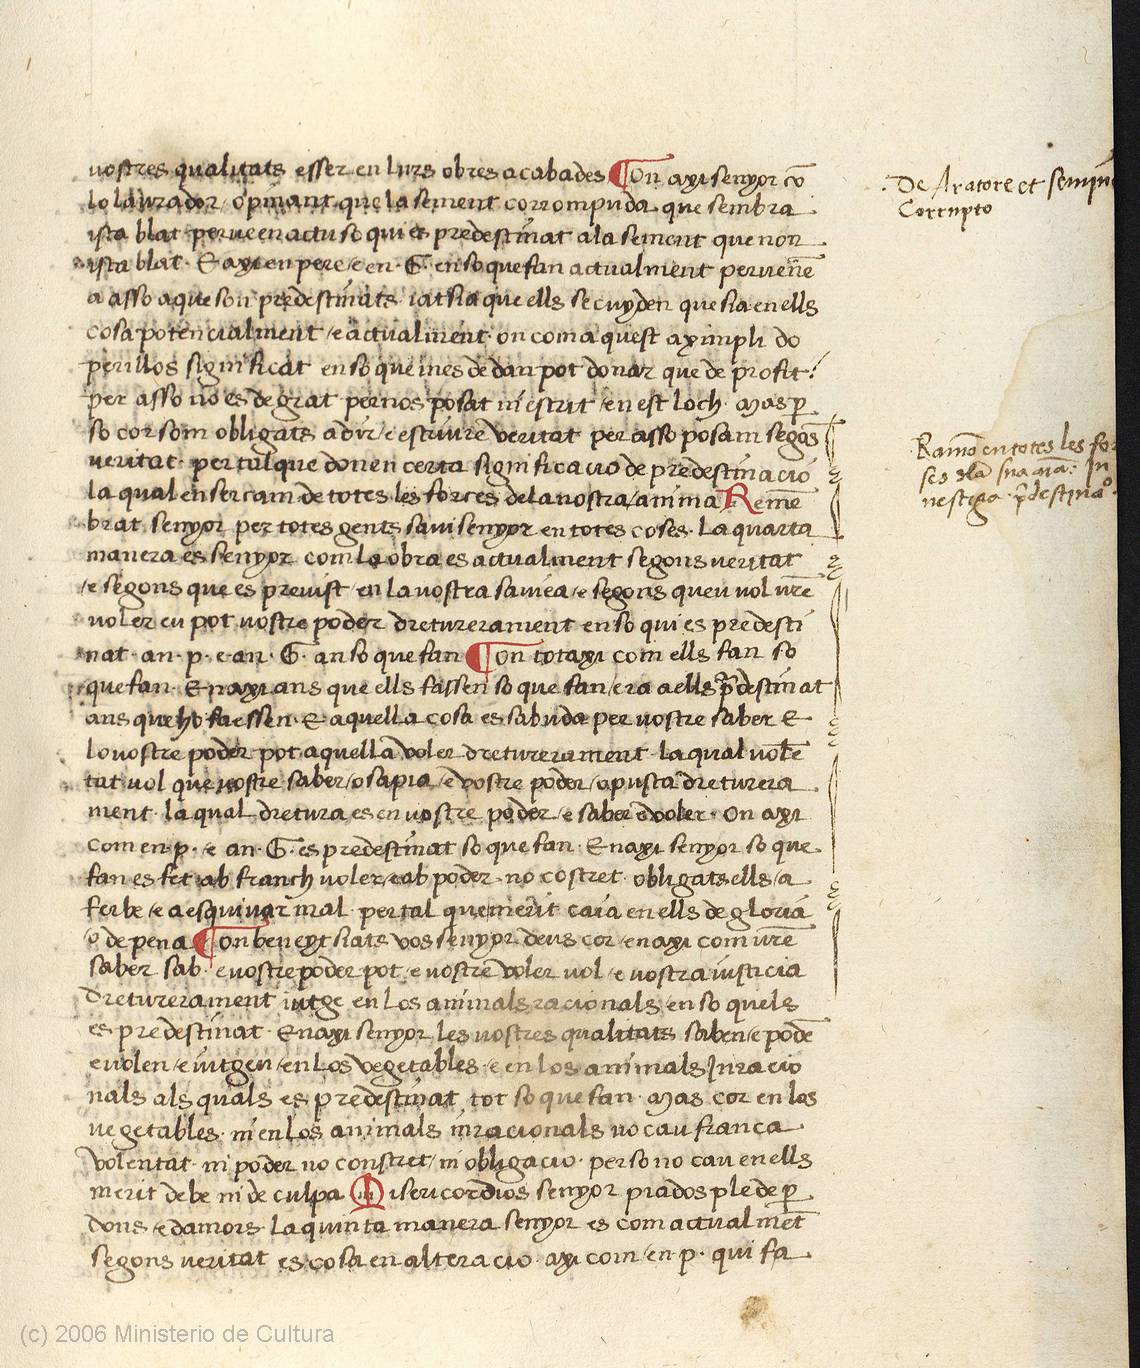 vostres qualitats esser en lurs obres acabades On axi senyor cō
lo laurador opinant que la sement corrompuda que sembra
ista blat perueen actu so qui es predestinat a la sement que non
ista blat. E axi en pere e en. G. en so que fan actualment peruenē
a asso a que son predestinats. iatsia que ells se cuyden que sia en ells
cosa potencialment e actualment. on com aquest aximpli do
perillos significat en so que mes de dan pot donar que de profit.
per asso no es de grat per nos posat ni escrit en est loch. Mas p̲
so cor som obligats a dir e escriure veritat per asso posam segōs
veritat. per tal que donen certa significacio de predestinacio
la qual ensercam de totes les forces de la nostra anima Remē
brat senyor per totes gents saui senyor en totes coses. La quarta
manera es senyor com la obra es actualment segons veritat
e segons que es preuist en la vostra sauiea e segons que u vol vr̄e
voler e u pot vostre poder dretureramēnt en so qui es predesti
nat. an. p. e an. G. an so que fan On tot axi com ells fan so
que fan. Enaxi ans que ells fassen so que fan era a ells p̄destinat
ans que ho faessen. E aquella cosa es sabuda per vostre saber E
lo vostre poder pot aquella voler dretureramēnt la qual volē
tat vol que vostre saber o sapia e vostre poder o pusta dreturera
ment. la qual dretura es en vostre poder e saber e voler. On axi
com en. p. e an. G. es predestinat so que fan. Enaxi senyor so que
fan es fet ab franch voler e ab poder no costret. obligats ells a
fer be e a esquiuar mal. per tal que merit caia en ells de gloria
o de pena On beneyt siats vos senyor deus cor enaxi com vr̄e
saber sab. e vostre poder pot e vostre voler vol e vostra iusticia
dretureramēnt iutge en los animals racionals en so quels
es predestinat. Enaxi senyor les vostres qualitats saben e podē
e volen e iutgen en los vegetables e en los animals Inracio
nals als quals es predestinat tot so que fan. Mas cor en los
vegetables ni en los animals inracionals no cau franca
volentat ni poder no constret ni obligacio. per so no cau en ells
merit de be ni de culpa Misericordios senyor piados ple de p̲
dons e damors. la quinta manera senyor es com actualmēt
segons veritat es cosa en alteracio axi com en. p. qui fa
De Aratore et semin
Corrupto
Ramō en totes les for
ses
(c) 2006 Ministerio de Cultura